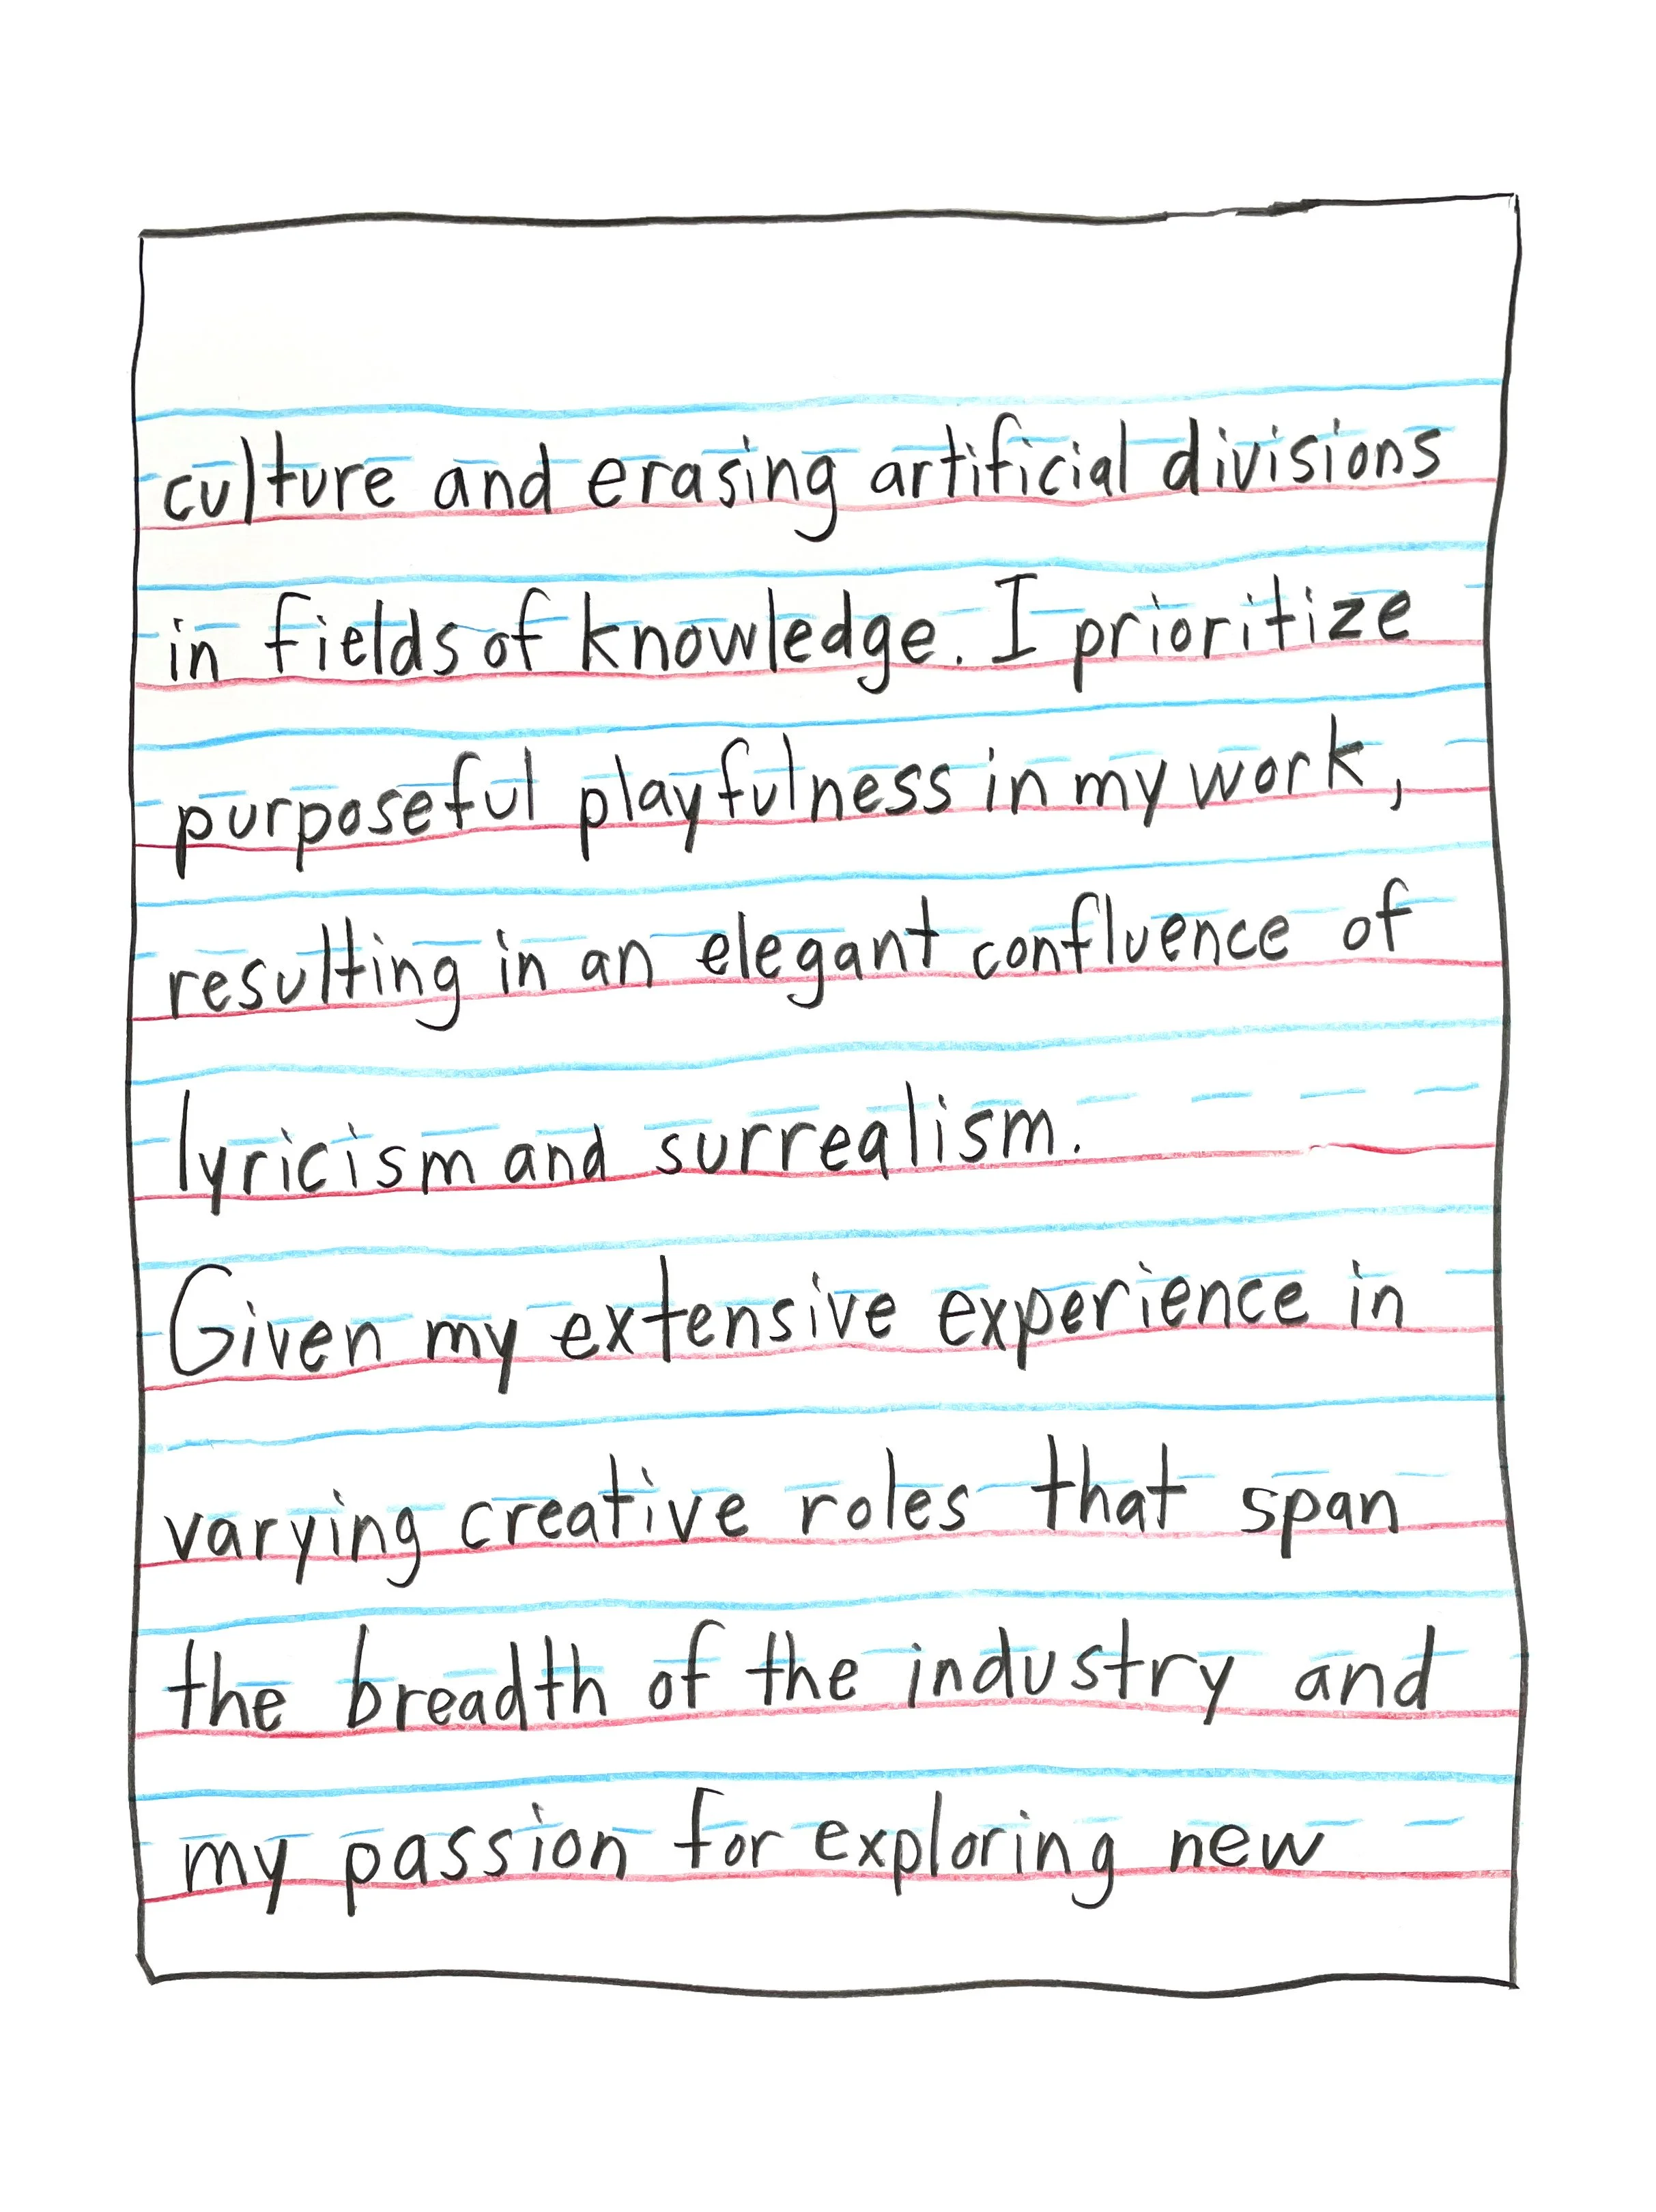 culture and erasing artificial divisions
in fields of knowledge. I prioritize
purposeful playfulness in my work,
resulting in an elegant confluence of
lyricism and surrealism.
Given my extensive experience in
varying creative roles that span
the breadth of the industry and
my passion for exploring new